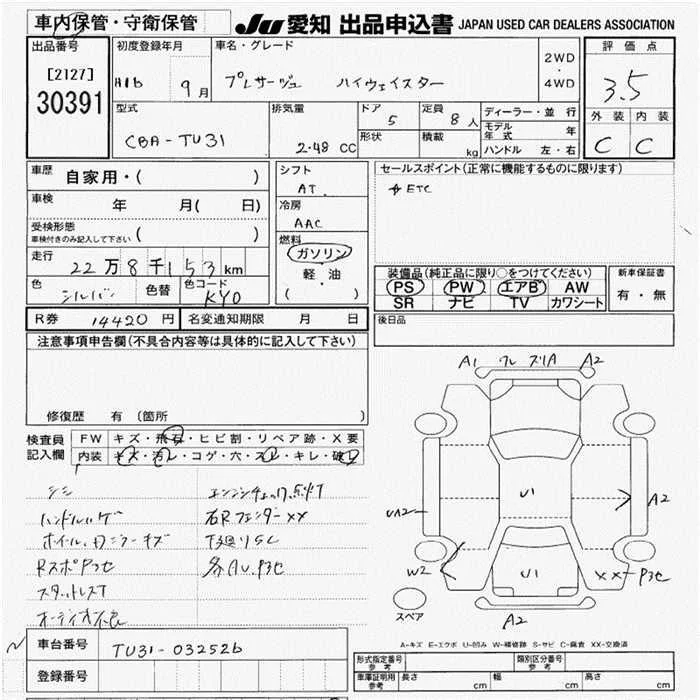 車内保管・守衛保管
JU 愛知 出品申込書 JAPAN USED CAR DEALERS ASSOCIATION
出品番号 初度登録年月 車名・グレード 評価点
[2127] H16 9月 プレサージュ ハイウェイスター 2WD・4WD 3.5
30391
型式 排気量 ドア 定員 ディーラー・並行 外装 内装
CBA-TU31 2.48 CC 5 8人 モデル年式 年 C C
形状 積載 kg ハンドル 左・右
車歴 自家用・( ) シフト セールスポイント(正常に機能するものに限ります)
AT ☆ETC
車検 年 月( 日) 冷房
AAC
受検形態 ( )
車検付きのみ記入して下さい
燃料
ガソリン
軽・油
( )
走行 22万8千153km
色 シルバー 色替 色コード KY0
装備品(純正品に限り○をつけてください) 新車保証書
PS PW エアB AW 有・無
SR ナビ TV カワシート
R券 14420円 名変通知期限 月 日 後日品
注意事項申告欄(不具合内容等は具体的に記入して下さい)
修復歴 有 (箇所 )
A1 フレ ズリA A2
検査員記入欄 FW キズ・飛石・ヒビ割・リペア跡・X要
内装 キズ・汚レ・コゲ・穴・スレ・キレ・破レ
シミ エンジンチェック点灯
ハンドルハゲ 右Rフェンダーxx
ホイール、ドアミラーキズ 下廻りSC
RスポP3セ 各AU.P3セ
スタットレスT
オーディオ不良
U1
A2
UA2
W2
U1
XX P3セ
スペア
A2
A-キズ E-エクボ U-凹み W-補修跡 S-サビ C-腐食 XX-交換済
車台番号 TU31-032526
登録番号
形式指定番号 参考 類別区分番号 参考
車庫証明用 参考 長さ cm 幅 cm 高さ cm